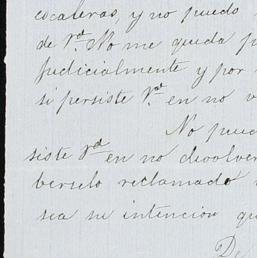 escaleras, y no puedo
de Vd. No me queda
Judicialmente y por
si persiste Vd. en no
No pued
siste Vd en no devolver
berselo reclamado
sea su intencion qu
De